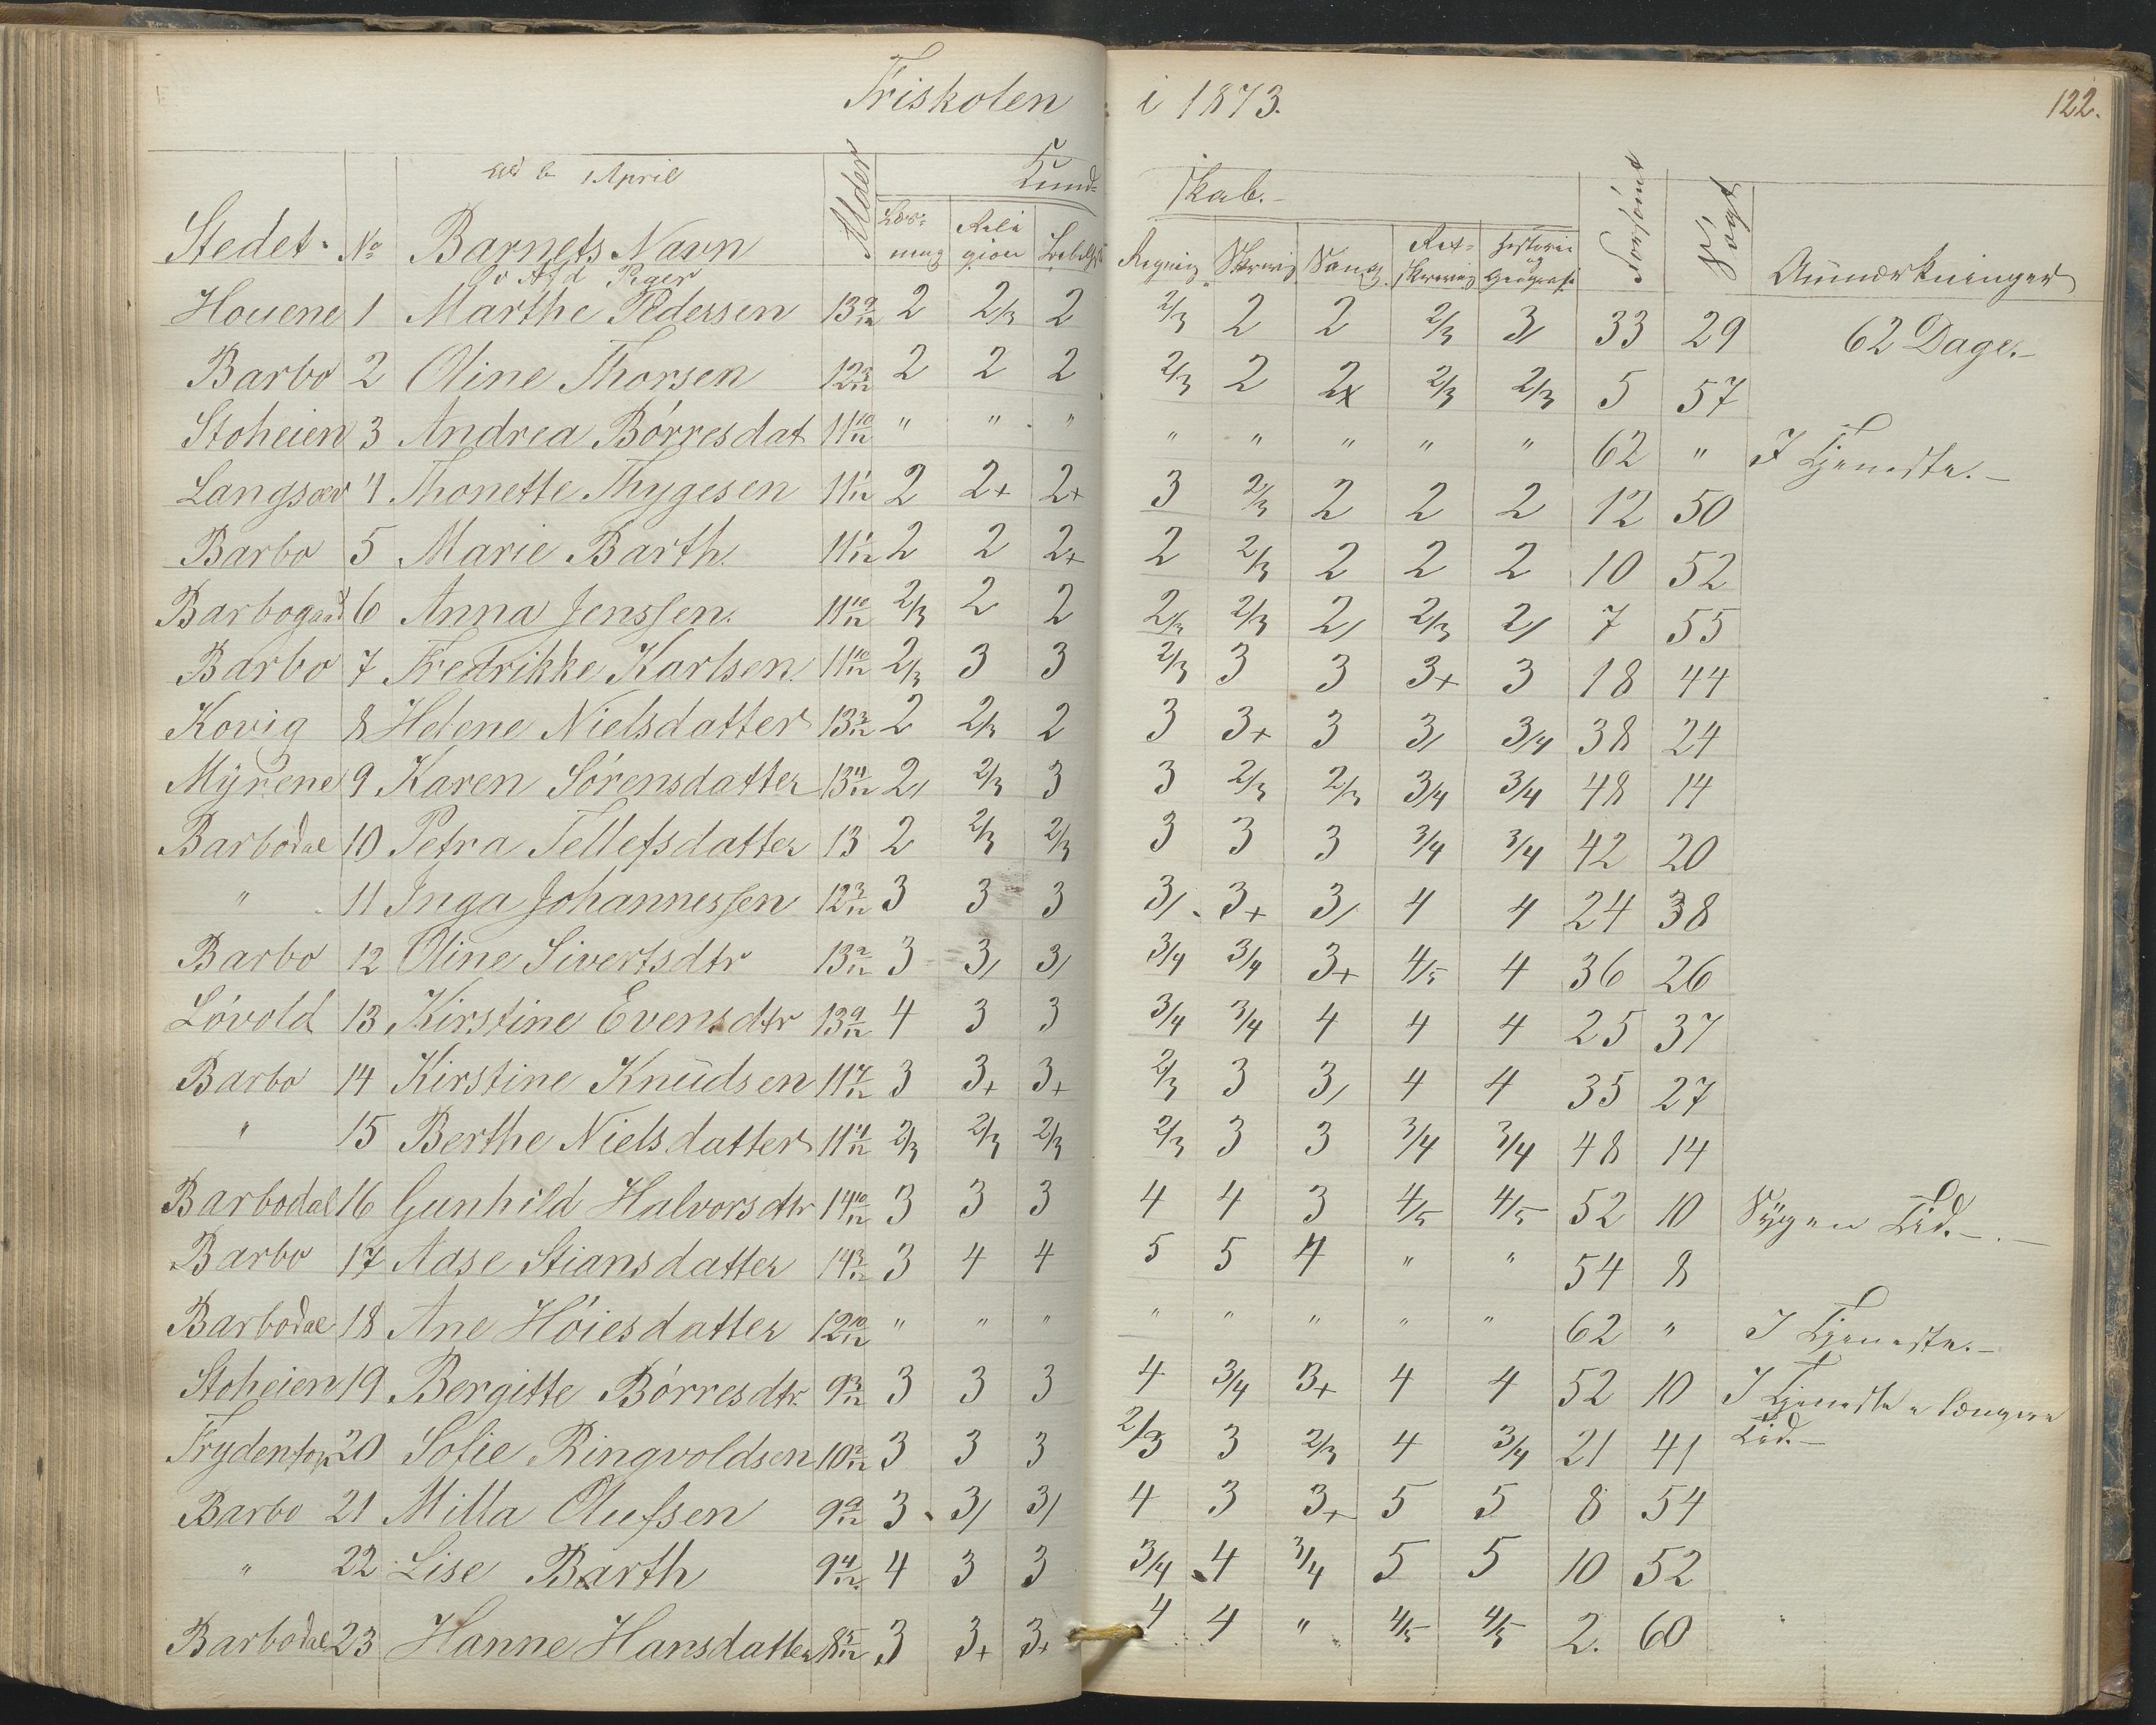 Friskolen i 1873. 122.
1 April Alder Kund- skab.- Forsömt Sögt
Stedet. No Barnets Navn Læs- ning Reli gion Bibelh Regning Skrivn Sang Ret- skrivning Historie og Geografi Anmærkninger
Öv Afd Piger
Houene 1 Marthe Pedersen 13 9/12 2 2/3 2 2/3 2 2 2/3 3/ 33 29 62 Dage.-
Barbo 2 Oline Thorsen 12 3/12 2 2 2 2/3 2 2x 2/3 2/3 5 57
Stoheien 3 Andrea Börresdat 11 10/12 " " " " " " " " 62 " I Tjeneste.-
Langsæv 4 Thonette Thygesen 11 1/12 2 2+ 2+ 3 2/3 2 2 2 12 50
Barbo 5 Marie Barth. 11 1/12 2 2 2+ 2 2/3 2 2 2 10 52
Barbogaard 6 Anna Jenssen. 11 10/12 2/3 2 2 2/3 2/3 2/ 2/3 2/ 7 55
Barbo 7 Fredrikke Karlsen. 11 10/12 2/3 3 3 2/3 3 3 3+ 3 18 44
Kovig 8 Helene Nielsdatter 13 3/12 2 2/3 2 3 3+ 3 3/ 3/4 38 24
Myrene 9 Karen Sörensdatter 13 11/12 2/ 2/3 3 3 2/3 2/3 3/4 3/4 48 14
Barbodal 10 Petra Tellefsdatter 13 2 2/3 2/3 3 3 3 3/4 3/4 42 20
" 11 Inga Johannessen 12 3/12 3 3 3 3/ 3+ 3/ 4 4 24 38
Barbo 12 Oline Sivertsdtr 13 2/12 3 3/ 3/ 3/4 3/4 3+ 4/5 4 36 26
Lövold 13 Kirstine Evensdtr 13 9/12 4 3 3 3/4 3/4 4 4 4 25 37
Barbo 14 Kirstine Knudsen 11 7/12 3 3+ 3+ 2/3 3 3/ 4 4 35 27
" 15 Berthe Nielsdatter 11 11/12 2/3 2/3 2/3 2/3 3 3 3/4 3/4 48 14
Barbodal 16 Gunhild Halvorsdtr 14 10/12 3 3 3 4 4 3 4/5 4/5 52 10 Sygen Tid.-.-
Barbo 17 Aase Stiansdatter 14 3/12 3 4 4 5 5 4 " " 54 8
Barbodal 18 Ane Höiesdatter 12 10/12 " " " " " " " " 62 " I Tjeneste.-
Stoheien 19 Bergitte Börresdtr. 9 3/12 3 3 3 4 3/4 3+ 4 4 52 10 I Tjeneste længere
Frydentop 20 Sofie Ringvoldsen 10 2/12 3 3 3 2/3 3 2/3 4 3/4 21 41 Tid.-
Barbo 21 Milla Olufsen 9 9/12 3 3/ 3/ 4 3 3+ 5 5 8 54
" 22 Lise Barth 9 4/12 4 3 3 3/4 4 3/4 5 5 10 52
Barbodal 23 Hanne Hansdatter 8 5/12 3 3+ 3+ 4 4 " 4/5 4/5 2. 60